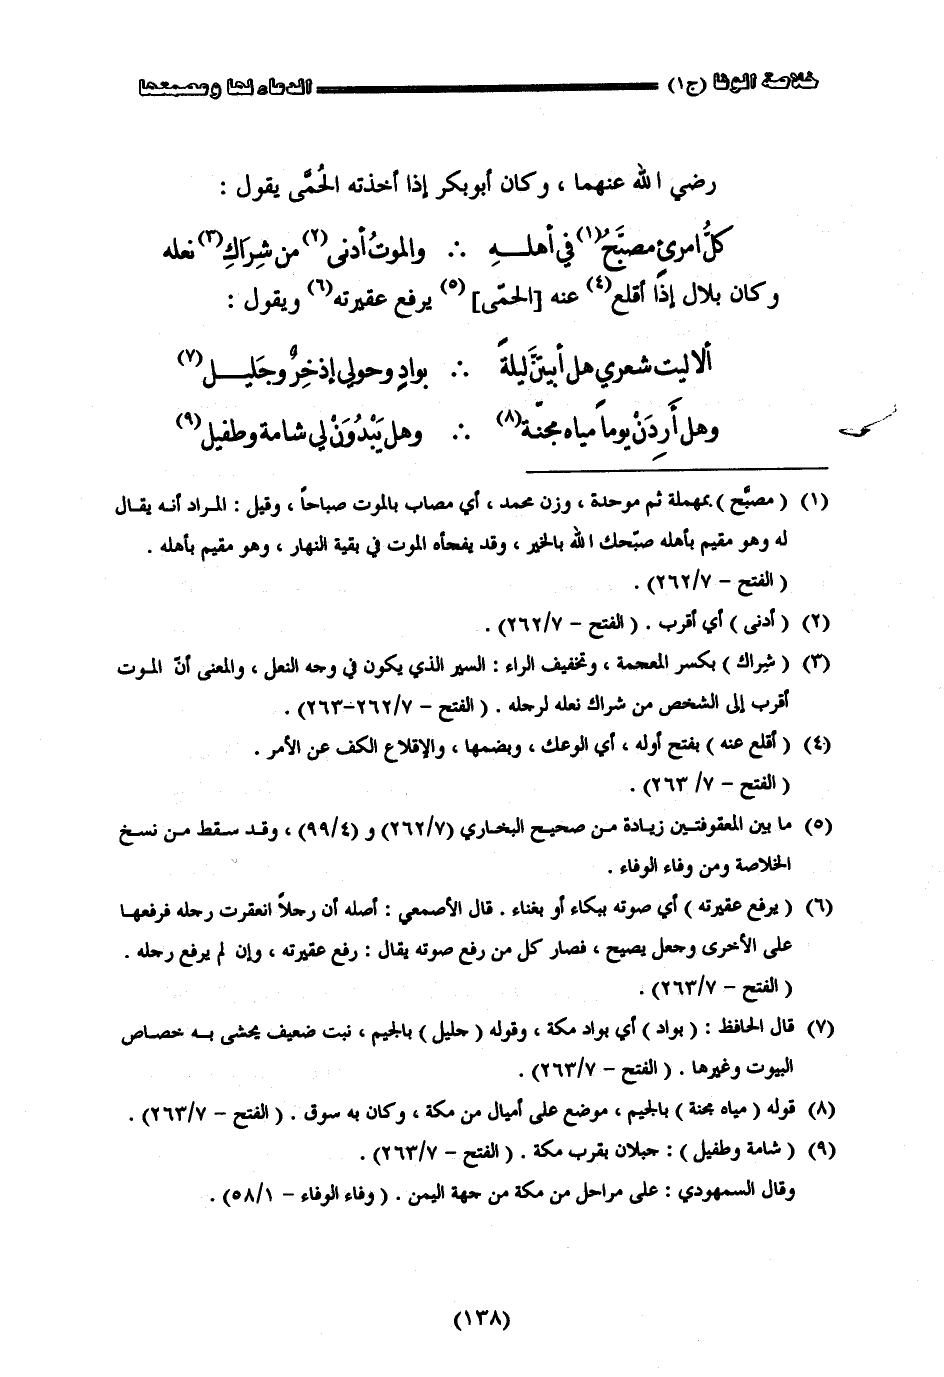 خلاصة الوفا (ج١) الدعاء لها وبصمتعها
رضي الله عنهما ، وكان أبوبكر إذا أخذته الحُمَّى يقول :
كلُّ امرئٍ مصبَّحٌ(١) في أهلـــهِ ∴ والموتُ أدنى(٢) من شِراكِ(٣) نعله
وكان بلال إذا أقلع(٤) عنه [الحمّى] (٥) يرفع عقيرته(٦) ويقول :
ألا ليت شعري هل أبيتنَّ ليلةً ∴ بوادٍ وحولي إذخِرٌ وجَليـــل(٧)
وهل أَرِدَنْ يوماً مياه مجنّة(٨) ∴ وهل يَبْدُوَنْ لي شامة وطفيل(٩)
(١) ( مصبَّح ) بمهملة ثم موحدة ، وزن محمد ، أي مصاب بالموت صباحاً ، وقيل : المراد أنه يقال
له وهو مقيم بأهله صبّحك الله بالخير ، وقد يفجأه الموت في بقية النهار ، وهو مقيم بأهله .
( الفتح – ٢٦٢/٧) .
(٢) ( أدنى ) أي أقرب . ( الفتح – ٢٦٢/٧) .
(٣) ( شِراك ) بكسر المعجمة ، وتخفيف الراء : السير الذي يكون في وجه النعل ، والمعنى أنّ الموت
أقرب إلى الشخص من شراك نعله لرجله . ( الفتح – ٢٦٢/٧-٢٦٣) .
(٤) ( أقلع عنه ) بفتح أوله ، أي الوعك ، وبضمها ، والإقلاع الكف عن الأمر .
( الفتح – ٧/ ٢٦٣) .
(٥) ما بين المعقوفتين زيادة من صحيح البخاري (٢٦٢/٧) و (٩٩/٤) ، وقد سقط من نسخ
الخلاصة ومن وفاء الوفاء .
(٦) ( يرفع عقيرته ) أي صوته ببكاء أو بغناء . قال الأصمعي : أصله أن رجلاً انعقرت رجله فرفعها
على الأخرى وجعل يصيح ، فصار كل من رفع صوته يقال : رفع عقيرته ، وإن لم يرفع رجله .
( الفتح – ٢٦٣/٧) .
(٧) قال الحافظ : ( بواد ) أي بواد مكة ، وقوله ( جليل ) بالجيم ، نبت ضعيف يحشى به خصاص
البيوت وغيرها . ( الفتح – ٢٦٣/٧) .
(٨) قوله ( مياه مجنة ) بالجيم ، موضع على أميال من مكة ، وكان به سوق . ( الفتح – ٢٦٣/٧) .
(٩) ( شامة وطفيل ) : جبلان بقرب مكة . ( الفتح – ٢٦٣/٧) .
وقال السمهودي : على مراحل من مكة من جهة اليمن . ( وفاء الوفاء – ٥٨/١) .
(١٣٨)